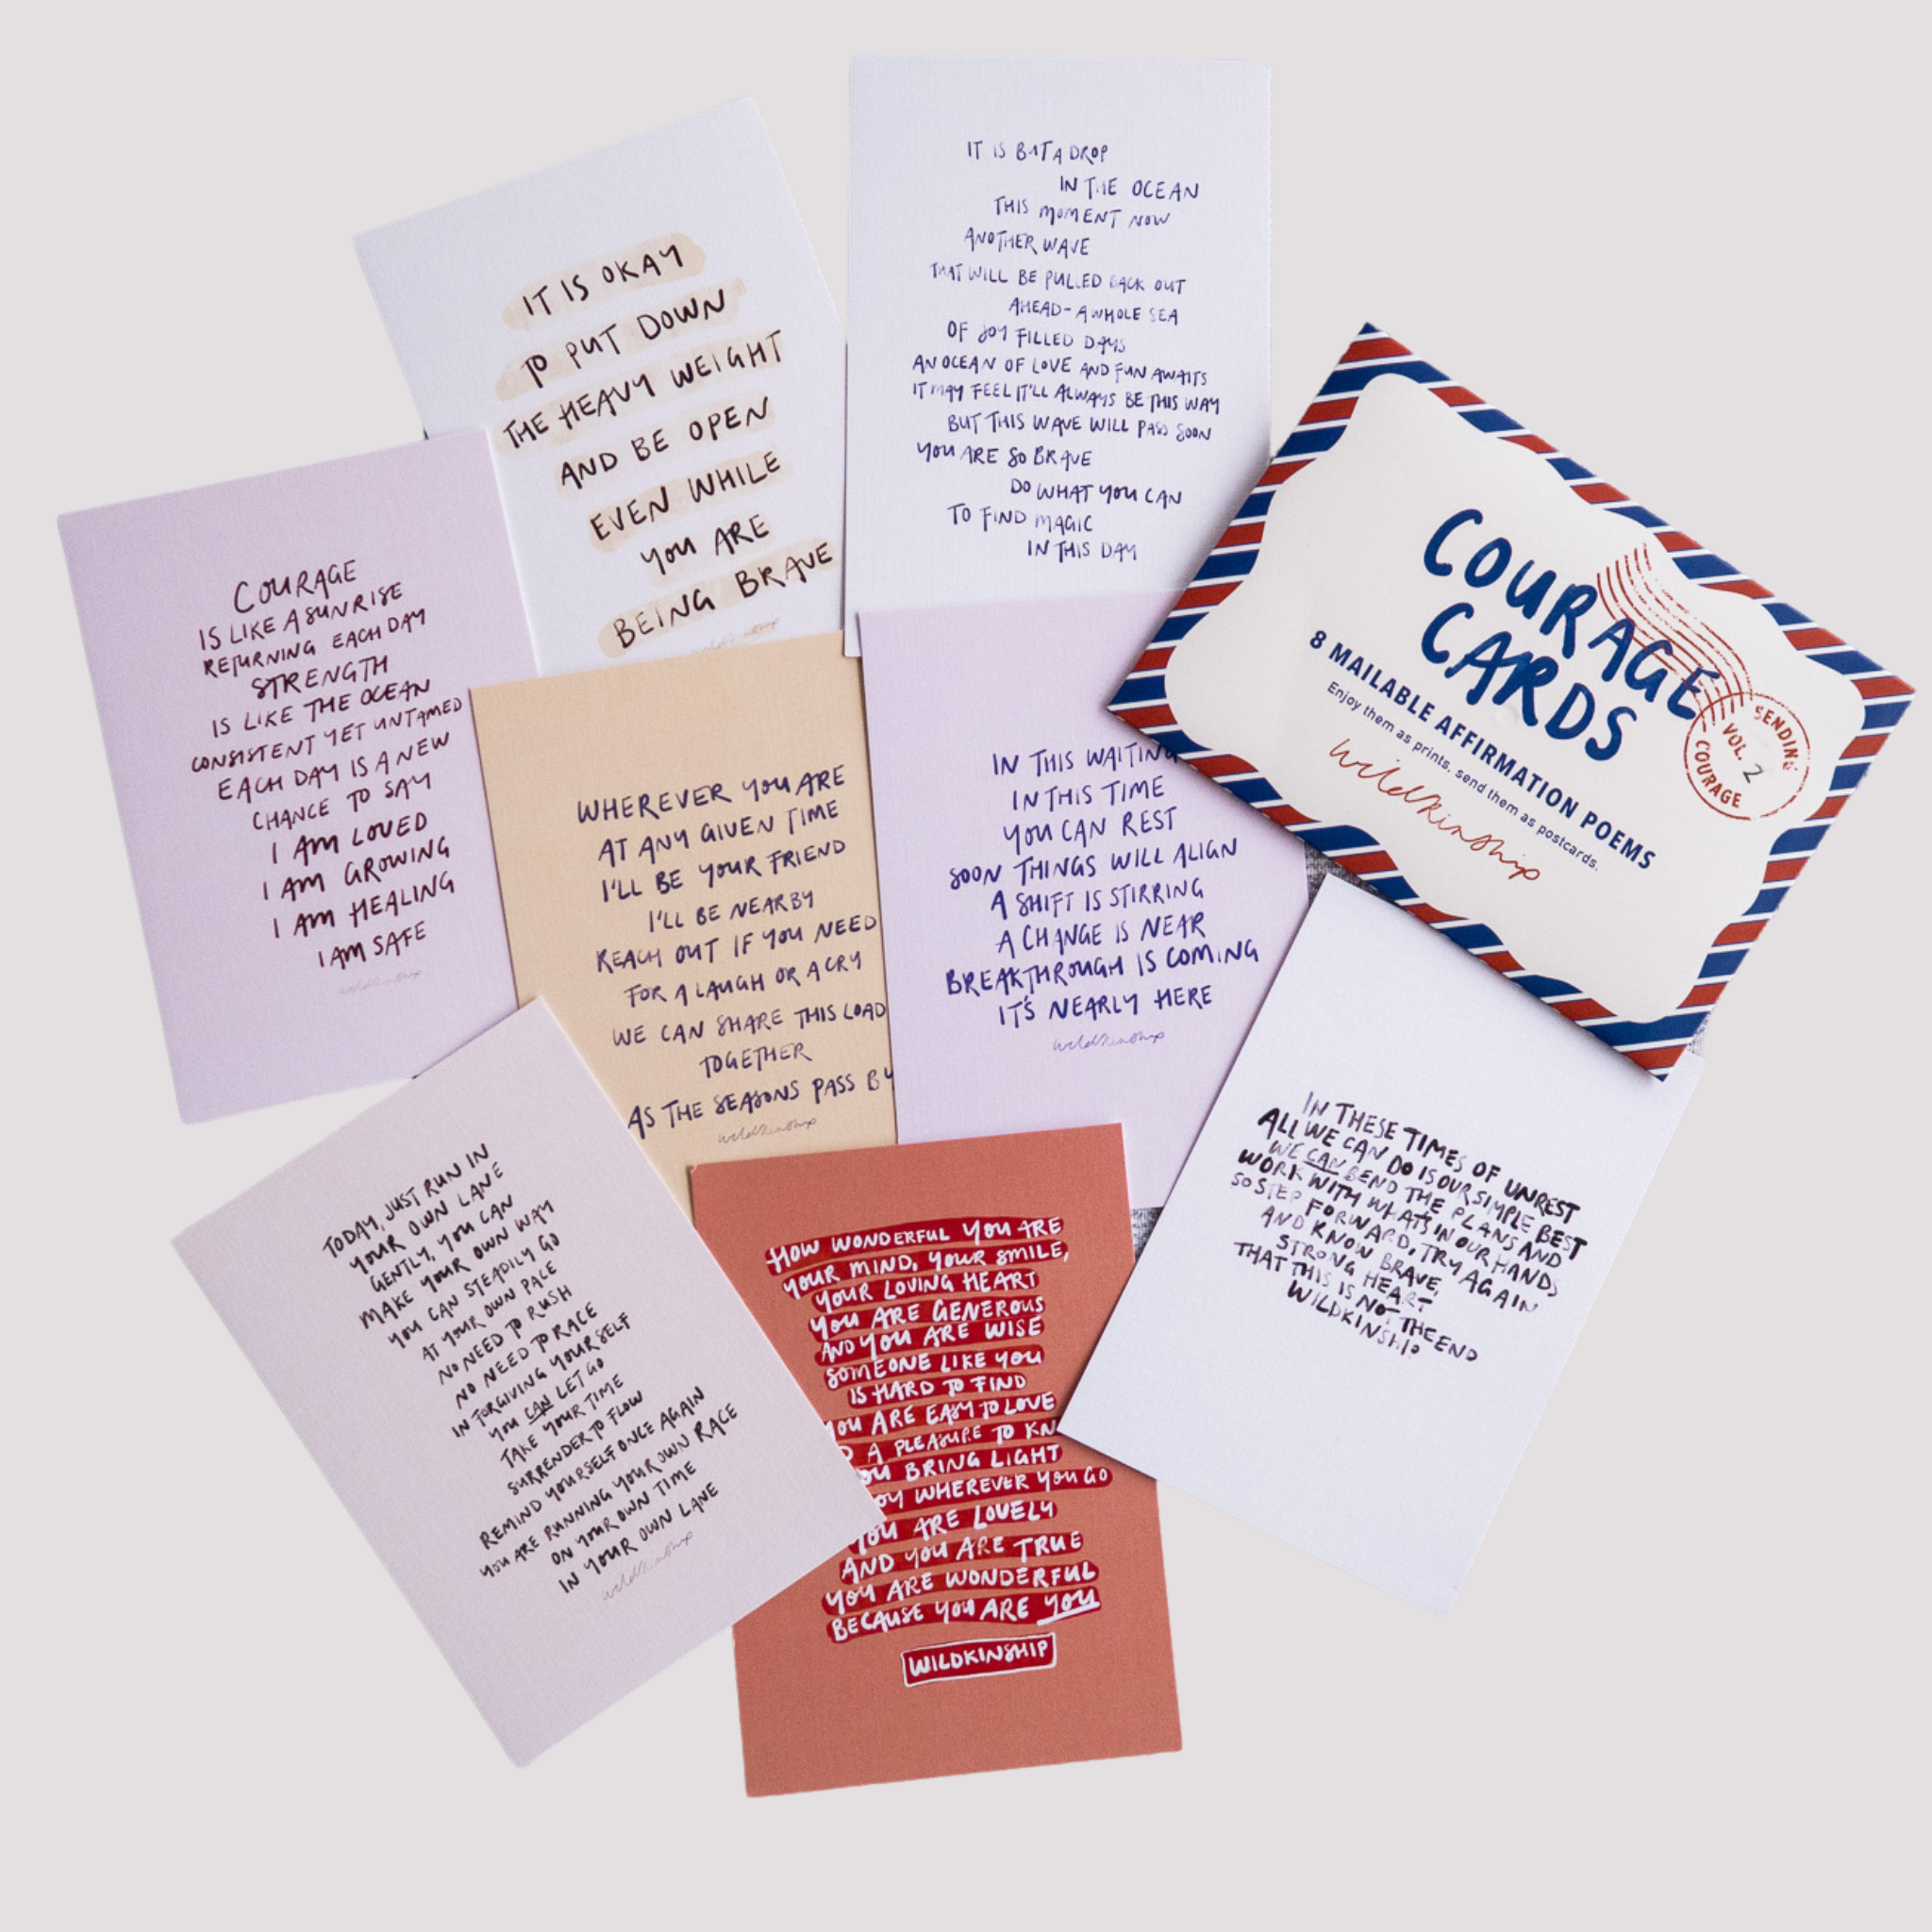 IT IS OKAY
TO PUT DOWN
THE HEAVY WEIGHT
AND BE OPEN
EVEN WHILE
YOU ARE
BEING BRAVE
wildkinship
IT IS BUT A DROP
IN THE OCEAN
THIS MOMENT NOW
ANOTHER WAVE
THAT WILL BE PULLED BACK OUT
AHEAD - A WHOLE SEA
OF JOY FILLED DAYS
AN OCEAN OF LOVE AND FUN AWAITS
IT MAY FEEL IT'LL ALWAYS BE THIS WAY
BUT THIS WAVE WILL PASS SOON
YOU ARE SO BRAVE
DO WHAT YOU CAN
TO FIND MAGIC
IN THIS DAY
COURAGE
CARDS
8 MAILABLE AFFIRMATION POEMS
Enjoy them as prints, send them as postcards.
wildkinship
SENDING
VOL. 2
COURAGE
COURAGE
IS LIKE A SUNRISE
RETURNING EACH DAY
STRENGTH
IS LIKE THE OCEAN
CONSISTENT YET UNTAMED
EACH DAY IS A NEW
CHANCE TO SAY
I AM LOVED
I AM GROWING
I AM HEALING
I AM SAFE
wildkinship
WHEREVER YOU ARE
AT ANY GIVEN TIME
I'LL BE YOUR FRIEND
I'LL BE NEARBY
REACH OUT IF YOU NEED
FOR A LAUGH OR A CRY
WE CAN SHARE THIS LOAD
TOGETHER
AS THE SEASONS PASS BY
wildkinship
IN THIS WAITING
IN THIS TIME
YOU CAN REST
SOON THINGS WILL ALIGN
A SHIFT IS STIRRING
A CHANGE IS NEAR
BREAKTHROUGH IS COMING
IT'S NEARLY HERE
wildkinship
TODAY, JUST RUN IN
YOUR OWN LANE
GENTLY, YOU CAN
MAKE YOUR OWN WAY
YOU CAN STEADILY GO
AT YOUR OWN PACE
NO NEED TO RUSH
NO NEED TO RACE
IN FORGIVING YOURSELF
YOU CAN LET GO
TAKE YOUR TIME
SURRENDER TO FLOW
REMIND YOURSELF ONCE AGAIN
YOU ARE RUNNING YOUR OWN RACE
ON YOUR OWN TIME
IN YOUR OWN LANE
wildkinship
HOW WONDERFUL YOU ARE
YOUR MIND, YOUR SMILE,
YOUR LOVING HEART
YOU ARE GENEROUS
AND YOU ARE WISE
SOMEONE LIKE YOU
IS HARD TO FIND
YOU ARE EASY TO LOVE
A PLEASURE TO KN
YOU BRING LIGHT
OY WHEREVER YOU GO
YOU ARE LOVELY
AND YOU ARE TRUE
YOU ARE WONDERFUL
BECAUSE YOU ARE YOU
WILDKINSHIP
IN THESE TIMES OF UNREST
ALL WE CAN DO IS OUR SIMPLE BEST
WE CAN BEND THE PLANS AND
WORK WITH WHATS IN OUR HANDS
SO STEP FORWARD, TRY AGAIN
AND KNOW BRAVE,
STRONG HEART
THAT THIS IS NOT THE END
WILDKINSHIP